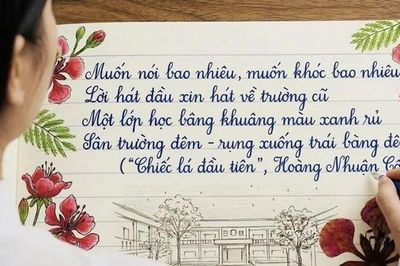 Muốn nói bao nhiêu, muốn khóc bao nhiêu
Lời hát đầu xin hát về trường cũ
Một lớp học bâng khuâng màu xanh rủ
Sân trường đêm - rụng xuống trái bàng đê
("Chiếc lá đầu tiên", Hoàng Nhuận